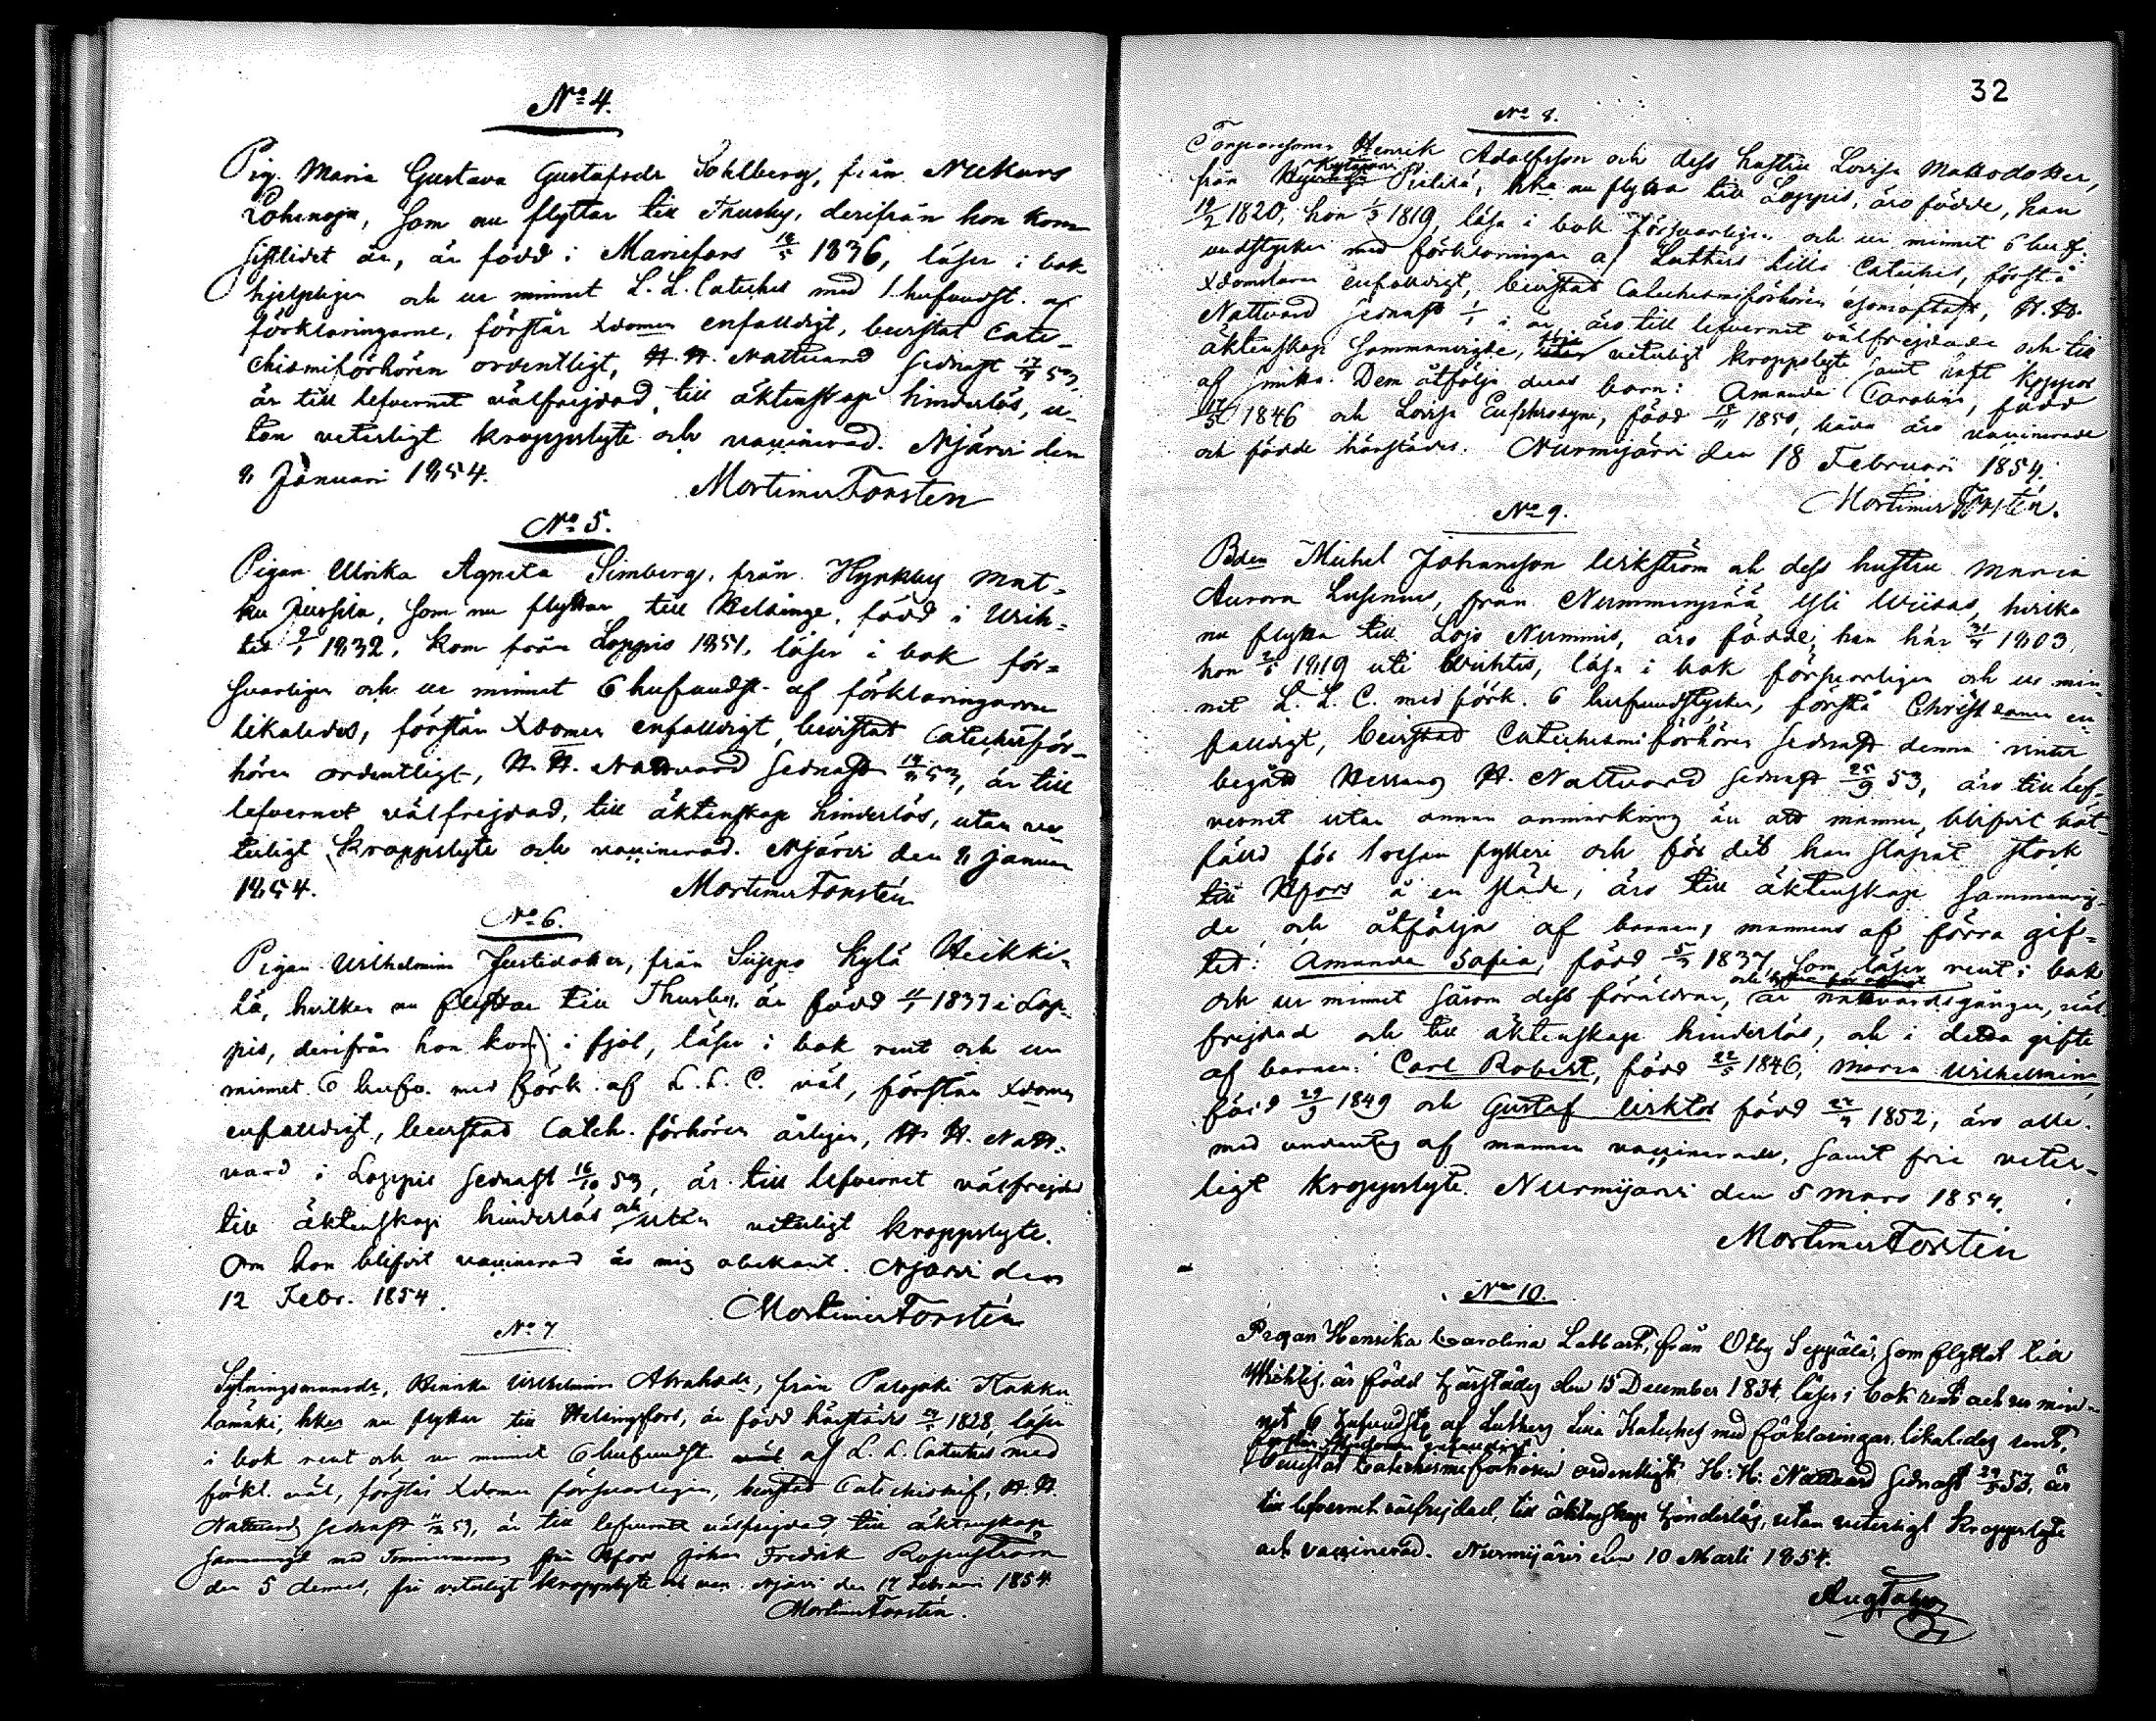 No 4.
Pig. Maria Gustava Gustafsdr Sohlberg, från Nukars
Lohenoja, som nu flyttar till Thusby, derifrån hon kom
sistlidet år, är född i Mariefors 1836, läser i bok
hjelpligen och ur minnet L. L. Cateches med 1 hufvudst. af
förklaringarne, förstår Xdomen enfalldigt, bevistat Cate-
chismiförhören ordentligt, H. H. Nattvard sednast 53,
är till lefvernet välfrejdad, till äktenskap hinderlös, u-
tan veterligt kroppslyte och vaccinerad. Njärvi den
8 Januari 1854.
Mortimer Forstén
No 5.
Pigan Ulrika Agneta Simberg, från Hyrkby Mat-
ku Jussila, som nu flyttar till Helsinge, född i Wich-
tis 1832, kom från Loppis 1851, läser i bok för-
svarligen och ur minnet 6 hufvudst. af förklaringarne
likaledes, förstår Xdomen enfalldigt, bevistat Catechisför-
hören ordentligt, H. H. Nattvard sednast 53, är till
lefvernet välfrejdad, till äktenskap hinderlös, utan ve-
terligt kroppslyte och vaccinerad. Njärvi den 8 Januari
1854.
Mortimer Forstén
No 6.
Pigan Wilhelmina Justidotter, från Suppo Kylä Heikki-
lä, hvilken nu flyttar till Thusby, är född 1837 i Lop-
pis, derifrån hon kom i fjol, läser i bok rent och ur
minnet 6 hufv. med förk. af L. L. C. väl, förstår Xdomen
enfalldigt, bevistad Catech. förhören årligen, H. H. Natt-
vard i Loppis sednast 16/10 53, är till lefvernet välfrejdad
till äktenskap hinderlös och utan veterligt kroppslyte.
Om hon blifvit vaccinerad är mig obekant. Njärvi den
12 Febr. 1854.
Mortimer Forstén
No 7
Sytningsmansdr, Henrika Wilhelmina Abrahsdr, från Palojoki Takku
lamäki, hken nu flyttar till Helsingfors, är född härstädes 1828, läser
i bok rent och ur minnet 6 hufvudst. af L. L. Cateches med
förkl. väl, förstår Xdomen försvarligen, bevistad Catechismif, H. H.
Nattvard sednast 53, är till lefvernet välfrejdad, till äktenskap
sammanvigd med Timmermannen från Hfors Johan Fredrik Rosenström
den 5 dennes, fri veterligt kroppslyte och vacc. Njärvi den 17 Februari 1854.
Mortimer Forstén.
32
No 8.
Torparesonen Henrik Adolfsson och dess hustru Lovisa Mattsdotter,
från Kytäjärvi Pietilä, hka nu flytta till Loppis, äro födde, han
19/2 1820, hon 1819, läsa i bok försvarligen och ur minnet 6 hufv.
vudstycken med förklaringar af Luthers Lilla Cateches, förstå
Xdomslären enfalldigt, bevistat Catechismiförhören, H. H.
Nattvard sednast i år, äro till lefvernet välfrejdade och till
äktenskap sammanvigde, veterligt kroppslyte samt haft koppor
af smitta. Dem åtfölja deras barn: Amanda Carolina, född
1846 och Lovisa Euphrosyne, född 1850, båda äro vaccinerade
och födde härstädes. Nurmijärvi den 18 Februari 1854.
Mortimer Forstén.
No 9.
Bden Michel Johansson Lerkström och dess hustru Maria
Aurora Lusenius, från Nummenpää Yli Wiisas, hvilka
nu flytta till Lojo Nummis, äro födde, han här 1803,
hon 1819 uti Wichtis, läsa i bok försvarligen och ur min
net L. L. C. med förk. 6 hufvudstycken, förstå Christdomen en
falldigt, bevistad Catechismi förhören sednast denna vinter
begått Herrans H. Nattvard sednast 25/9 53, äro till lef-
vernet utan annan anmärkning än att mannen blifvit böt-
fälld för 1 resan fylleri och för det han släpat stock
till Hfors å en släde, äro till äktenskap sammanvig-
de och åtföljas af barnen, mannens af förra gif-
tet: Amanda Sofia, född 1837, som läser rent i bok
och ur minnet såsom dess föräldrar, är nattvardsgången, väl
frejdad och till äktenskap hinderlös, och i detta gifte
af barnen: Carl Robert, född 22/5 1846, Maria Wilhelmina,
född 29/9 1849 och Gustaf Wiktor född 1852, äro alle
med undantag af mannen vaccinerade, samt frie veter-
ligt kroppslyte. Nurmijärvi den 5 Mars 1854.
Mortimer Forstén
No 10.
Pigan Henrika Carolina Labbart, från Otby Seppälä, som flyttat till
Wichtis, är född härstädes den 15 December 1834, läser i bok rent och ur min
net 6 hufvudst. af Luthers Lilla Kateches med förklaringar likaledes rent,
förstår Christdomen enfaldigt,
bevistat Catechismeförhören ordentligt, H: H: Nattvard sednast 53, är
till lefvernet välfrejdad, till äktenskap hinderlös, utan veterligt kroppslyte
och vaccinerad. Nurmijärvi den 10 Marti 1854.